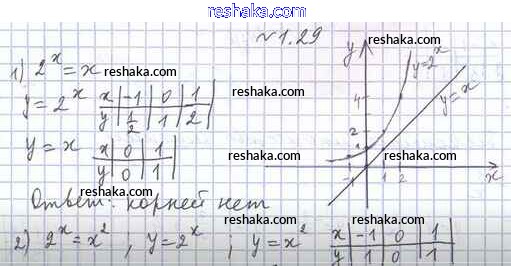 reshaka.ru
№ 1.29
1) 2^x = x
y = 2^x
x | -1 | 0 | 1
y | 1/2 | 1 | 2
y = x
x | 0 | 1
y | 0 | 1
y
y=2^x
y=x
4
2
1
-1 1 2 x
Ответ: корней нет
2) 2^x = x^2 , y = 2^x ; y = x^2
x | -1 | 0 | 1
y | 1 | 0 | 1
reshaka.com
reshaka.com
reshaka.com
reshaka.com
reshaka.com
reshaka.com
reshaka.com
reshaka.com
reshaka.com